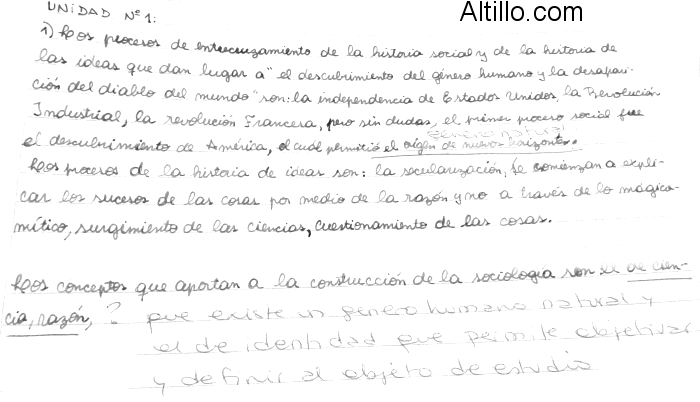 Altillo.com
UNIDAD Nº 1:
1) Los procesos de entrecruzamiento de la historia social y de la historia de
las ideas que dan lugar a "el descubrimiento del género humano y la desapari-
ción del diablo del mundo" son: la independencia de Estados Unidos, la Revolución
Industrial, la revolución Francesa, pero sin dudas, el primer proceso social fue
género natural
el descubrimiento de América, el cuál permitió el origen de nuevos horizontes.
Los procesos de la historia de ideas son: la secularización, se comienzan a expli-
car los sucesos de las cosas por medio de la razón y no a través de lo mágico-
mítico, surgimiento de las ciencias, cuestionamiento de las cosas.
Los conceptos que aportan a la construcción de la sociología son el de cien-
cia, razón, ? que existe un género humano natural y
el de identidad que permite objetivar
y definir al objeto de estudio